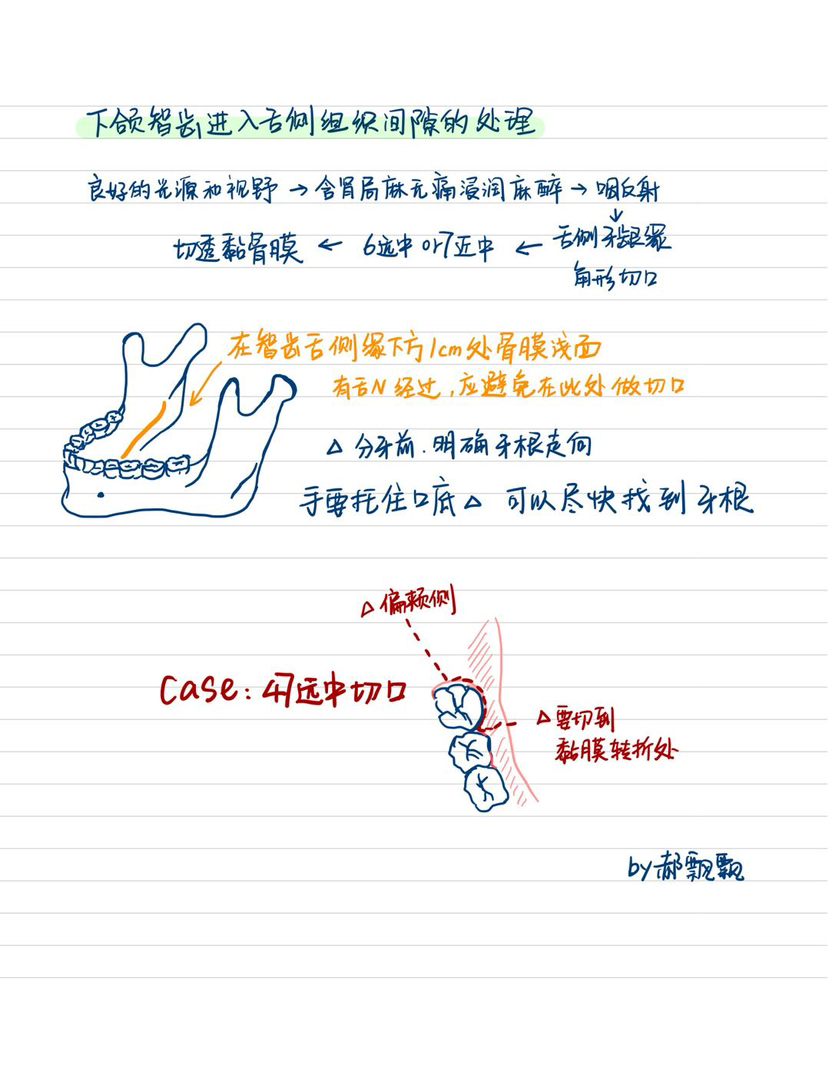 下颌智齿进入舌侧组织间隙的处理
良好的光源和视野 → 含肾局麻无痛浸润麻醉 → 咽反射
↓
切透黏骨膜 ← 6远中 or 7近中 ← 舌侧牙龈缘
角形切口
在智齿舌侧缘下方1cm处骨膜浅面
有舌N经过,应避免在此处做切口
△ 分牙前.明确牙根走向
手要托住口底△ 可以尽快找到牙根
△偏颊侧
case: 47远中切口
△要切到
黏膜转折处
by郝飘飘